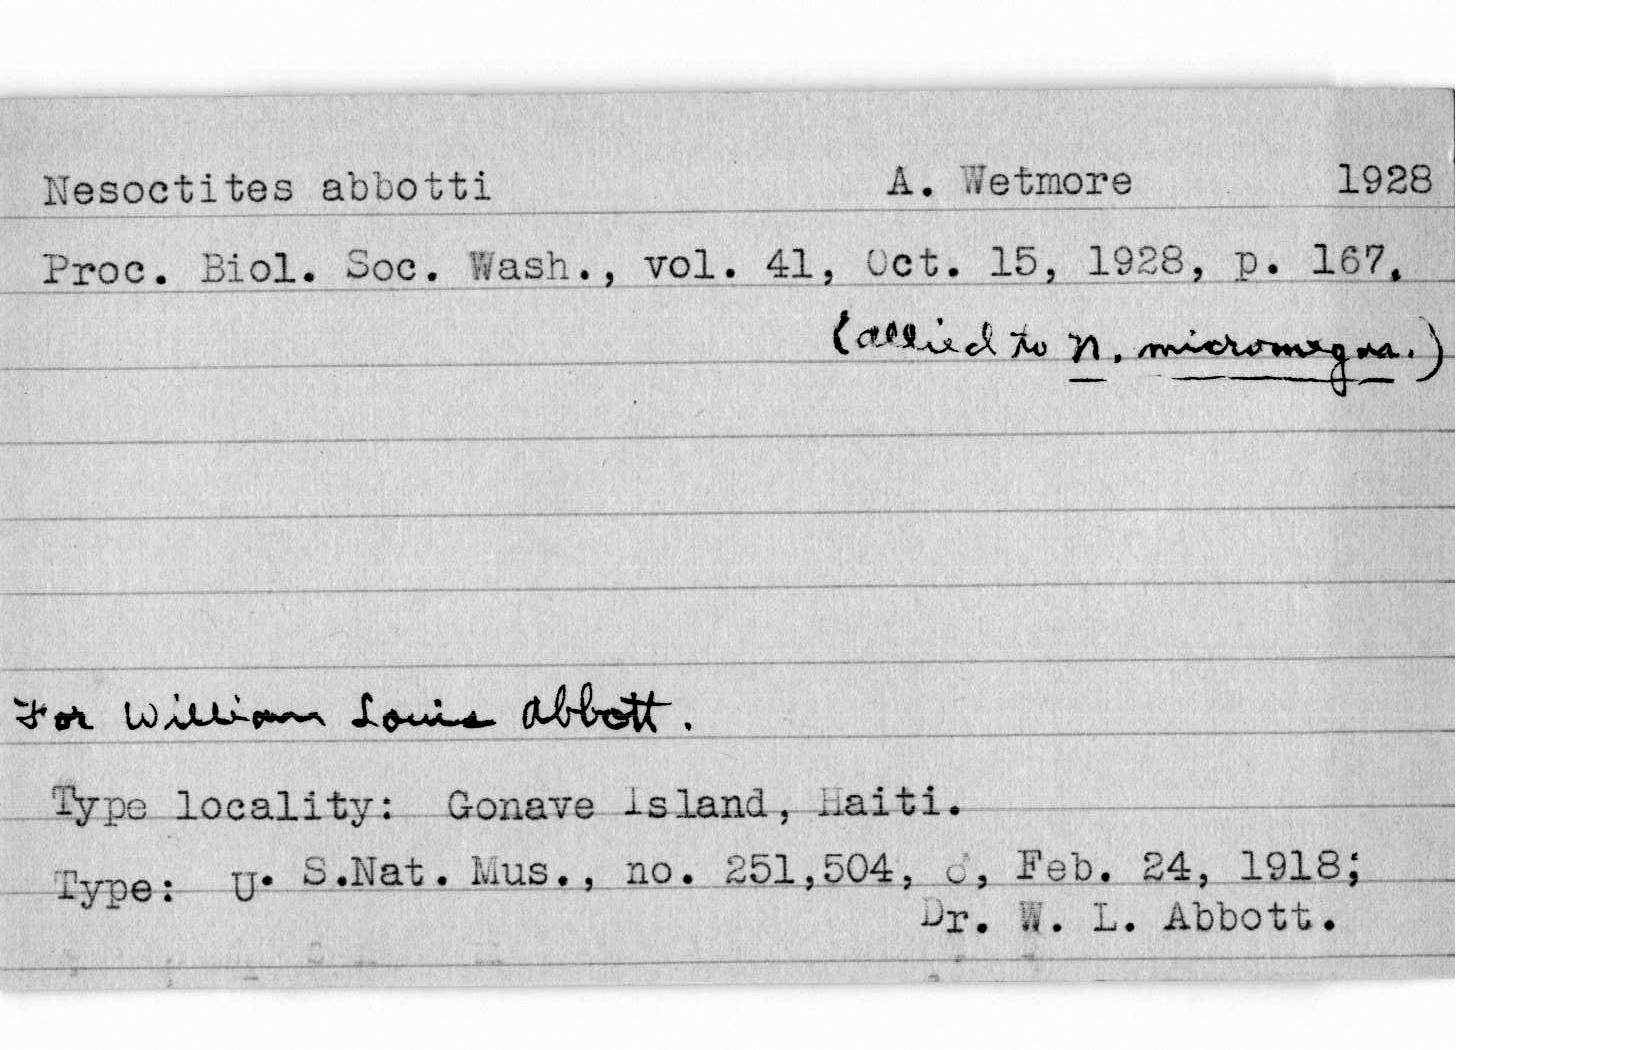 Nesoctites abbotti A. Wetmore 1928
Proc. Biol. Soc. Wash., vol. 41, Oct. 15, 1928, p. 167.
(allied to N. micromegas.)
For William Louis Abbott.
Type locality: Gonave Island, Haiti.
Type: U. S.Nat. Mus., no. 251,504, ♂, Feb. 24, 1918;
Dr. W. L. Abbott.